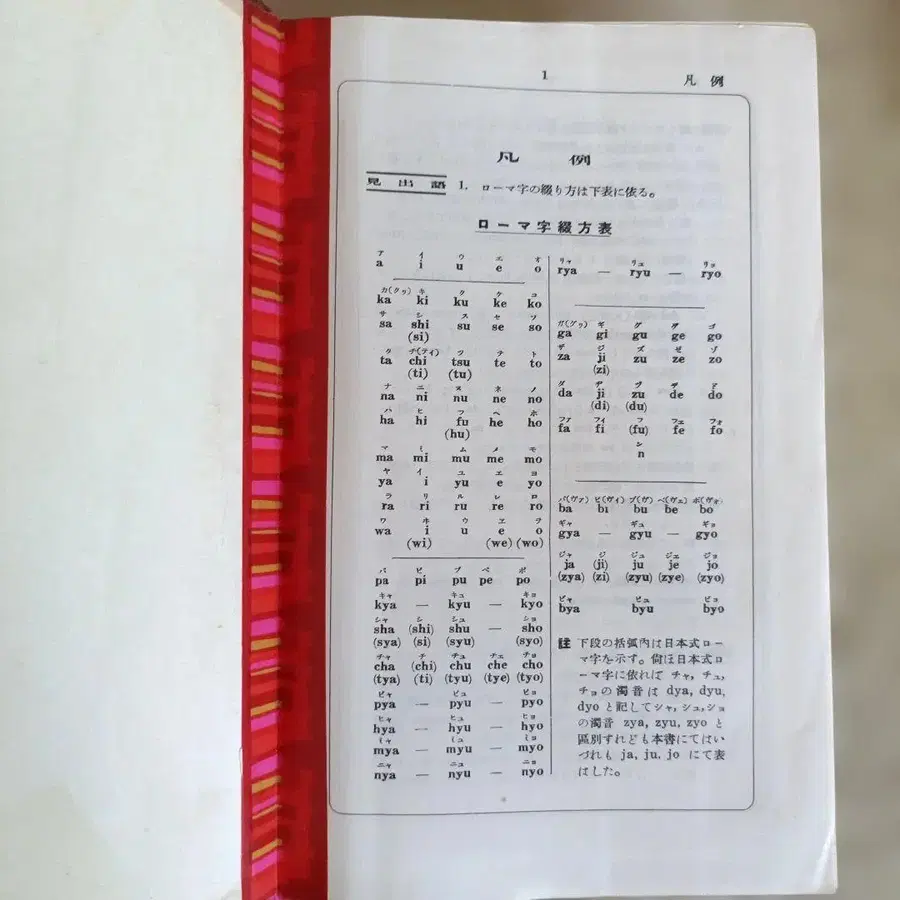 1 凡例
凡例
見出語 1. ローマ字の綴り方は下表に依る。
ローマ字綴方表
ア イ ウ エ オ
a i u e o
カ(クヮ) キ ク ケ コ
ka ki ku ke ko
サ シ ス セ ソ
sa shi su se so
(si)
タ チ(ティ) ツ テ ト
ta chi tsu te to
(ti) (tu)
ナ ニ ヌ ネ ノ
na ni nu ne no
ハ ヒ フ ヘ ホ
ha hi fu he ho
(hu)
マ ミ ム メ モ
ma mi mu me mo
ヤ イ ユ エ ヨ
ya i yu e yo
ラ リ ル レ ロ
ra ri ru re ro
ワ ヰ ウ ヱ ヲ
wa i u e o
(wi) (we) (wo)
パ ピ プ ペ ポ
pa pi pu pe po
キャ キュ キョ
kya — kyu — kyo
シャ シ シュ ショ
sha (shi) shu — sho
(sya) (si) (syu) (syo)
チャ チ チュ チェ チョ
cha (chi) chu che cho
(tya) (ti) (tyu) (tye) (tyo)
ピャ ピュ ピョ
pya — pyu — pyo
ヒャ ヒュ ヒョ
hya — hyu — hyo
ミャ ミュ ミョ
mya — myu — myo
ニャ ニュ ニョ
nya — nyu — nyo
リャ リュ リョ
rya — ryu — ryo
ガ(グヮ) ギ グ ゲ ゴ
ga gi gu ge go
ザ ジ ズ ゼ ゾ
za ji zu ze zo
(zi)
ダ ヂ ヅ デ ド
da ji zu de do
(di) (du)
ファ フィ フ フェ フォ
fa fi (fu) fe fo
ン
n
バ(ヴァ) ビ(ヴィ) ブ(ヴ) ベ(ヴェ) ボ(ヴォ)
ba bi bu be bo
ギャ ギュ ギョ
gya — gyu — gyo
ジャ ジ ジュ ジェ ジョ
ja (ji) ju je jo
(zya) (zi) (zyu) (zye) (zyo)
ビャ ビュ ビョ
bya byu byo
註 下段の括弧內は日本式ロー
マ字を示す。尙ほ日本式ロ
ーマ字に依れば チャ, チュ,
チョの濁音は dya, dyu,
dyo と記してシャ, シュ, ショ
の濁音 zya, zyu, zyo と
區別すれども本書にてはい
づれも ja, ju, jo にて表
はした。